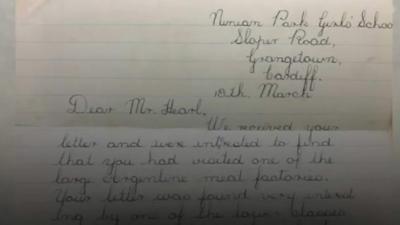 Ninian Park Girls' Schoo
Sloper Road,
Grangetown,
Cardiff.
10th. March
Dear Mr. Hearl,
We received your
letter and were intrested to find
that you had visited one of the
large Argentine meat factories.
Your letter was found very interest
ing by one of the lower classes